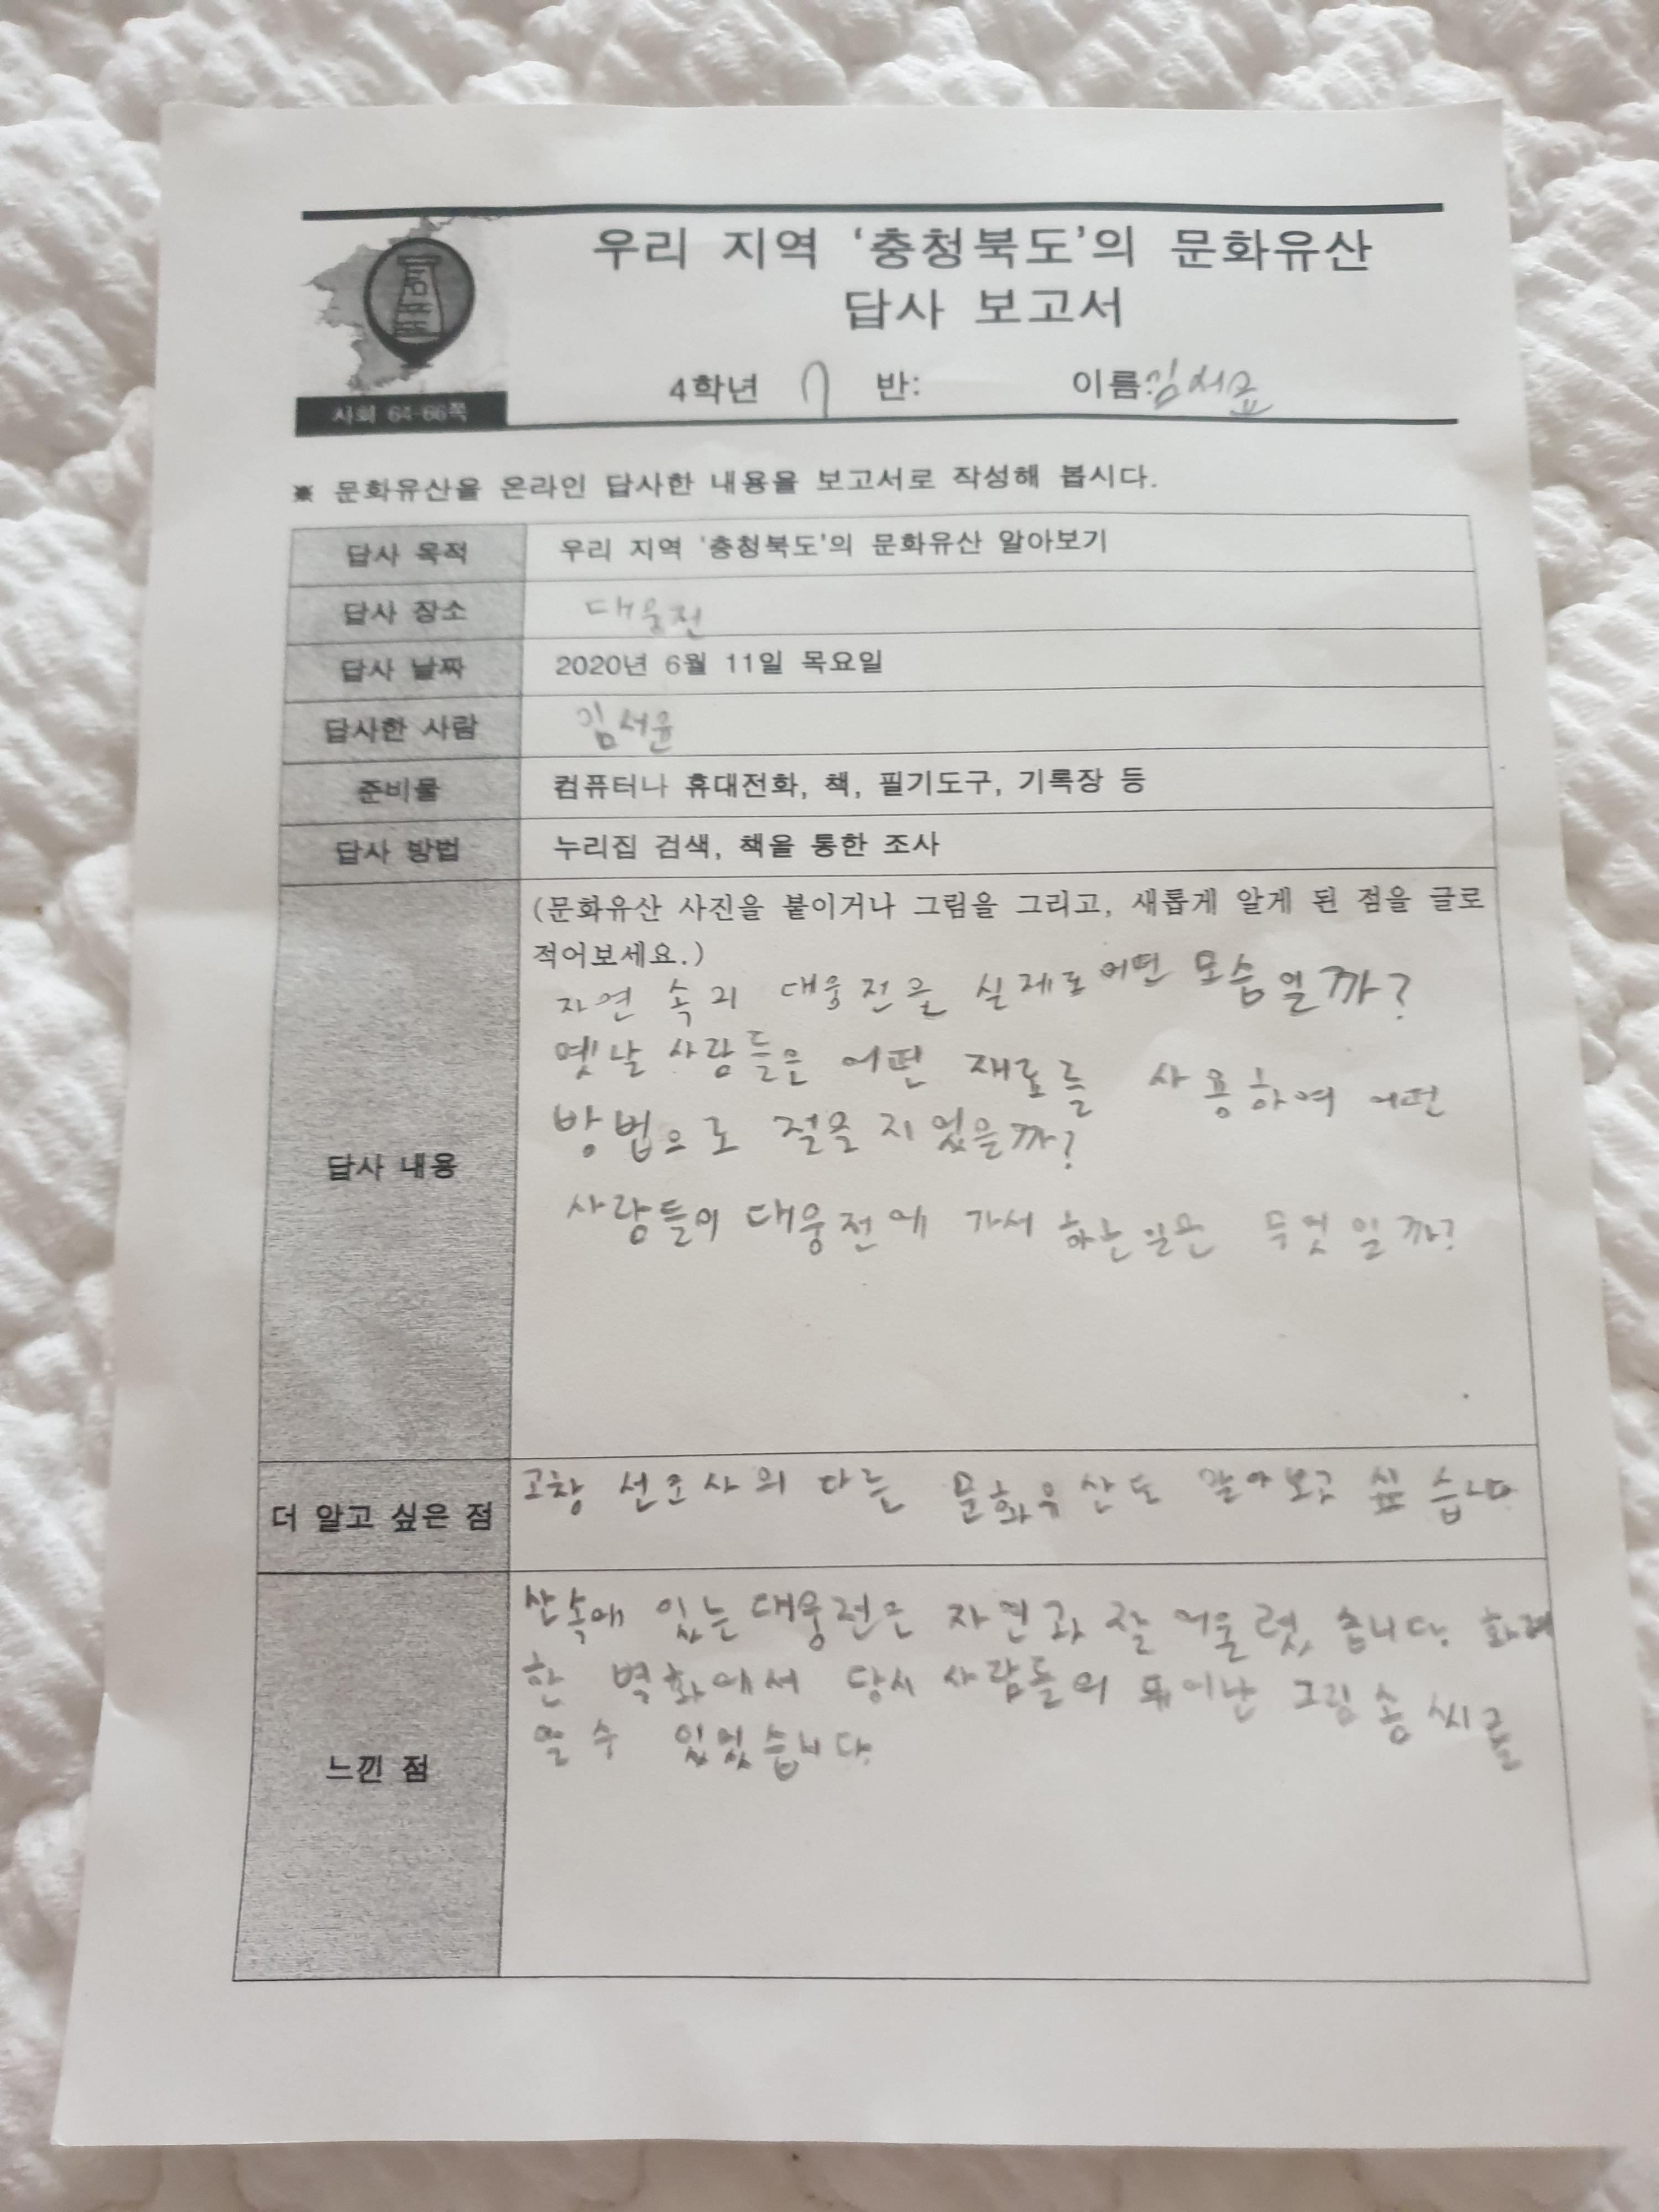 우리 지역 '충청북도'의 문화유산
답사 보고서
4학년 7 반: 이름:김서윤
사회 64-66쪽
※ 문화유산을 온라인 답사한 내용을 보고서로 작성해 봅시다.
답사 목적 우리 지역 '충청북도'의 문화유산 알아보기
답사 장소 대웅전
답사 날짜 2020년 6월 11일 목요일
답사한 사람 김서윤
준비물 컴퓨터나 휴대전화, 책, 필기도구, 기록장 등
답사 방법 누리집 검색, 책을 통한 조사
답사 내용
(문화유산 사진을 붙이거나 그림을 그리고, 새롭게 알게 된 점을 글로
적어보세요.)
자연 속의 대웅전을 실제로 어떤 모습일까?
옛날 사람들은 어떤 재료를 사용하여 어떤
방법으로 절을 지었을까?
사람들이 대웅전에 가서 하는일은 무엇일까?
더 알고 싶은 점
고창 선조사의 다른 문화유산도 알아보고 싶습니다
느낀 점
산속에 있는 대웅전은 자연과 잘 어울렸습니다. 화려
한 벽화에서 당시 사람들의 뛰어난 그림솜씨를
알수 있었습니다.